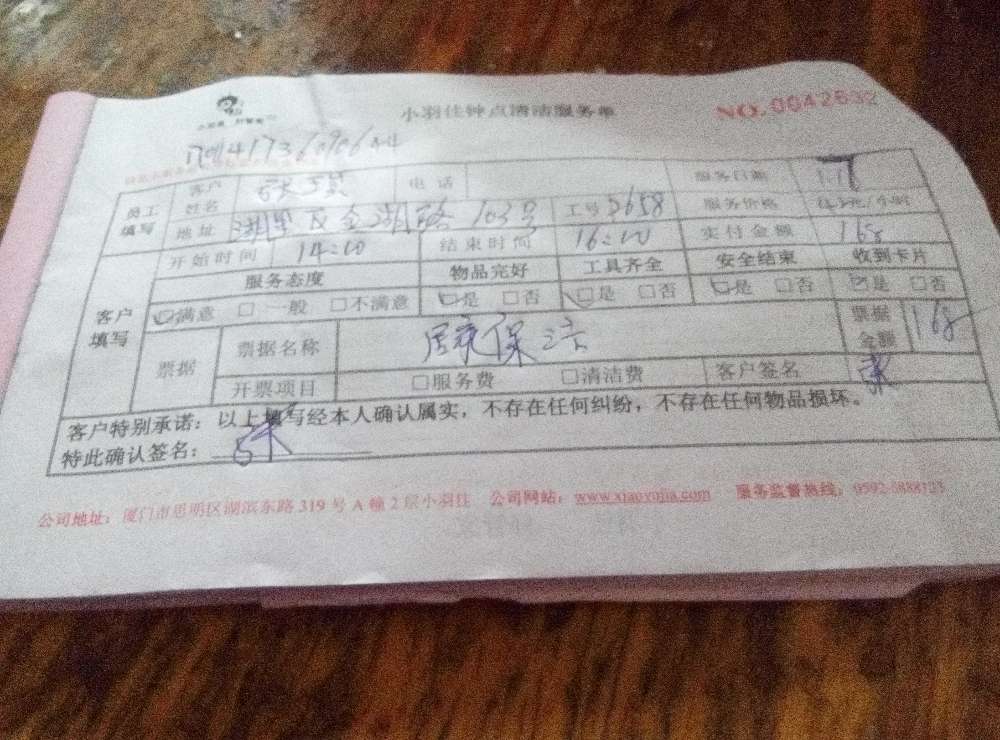 小羽佳钟点清洁服务单 NO.0042632
员工填写 客户姓名 张 电话 服务日期
地址 湖里区金湖路 103号 工号 3658 服务价格 元/小时
开始时间 14:00 结束时间 16:00 实付金额 168
客户填写 服务态度 物品完好 工具齐全 安全结束 收到卡片
☑满意 □一般 □不满意 ☑是 □否 ☑是 □否 ☑是 □否 ☑是 □否
票据 票据名称 居家保洁 票据金额 168
开票项目 □服务费 □清洁费 客户签名 张
客户特别承诺:以上填写经本人确认属实,不存在任何纠纷,不存在任何物品损坏。
特此确认签名: 张
公司地址:厦门市思明区湖滨东路 319 号 A 幢 2 层小羽佳 公司网站:www.xiaoyujia.com 服务监督热线: